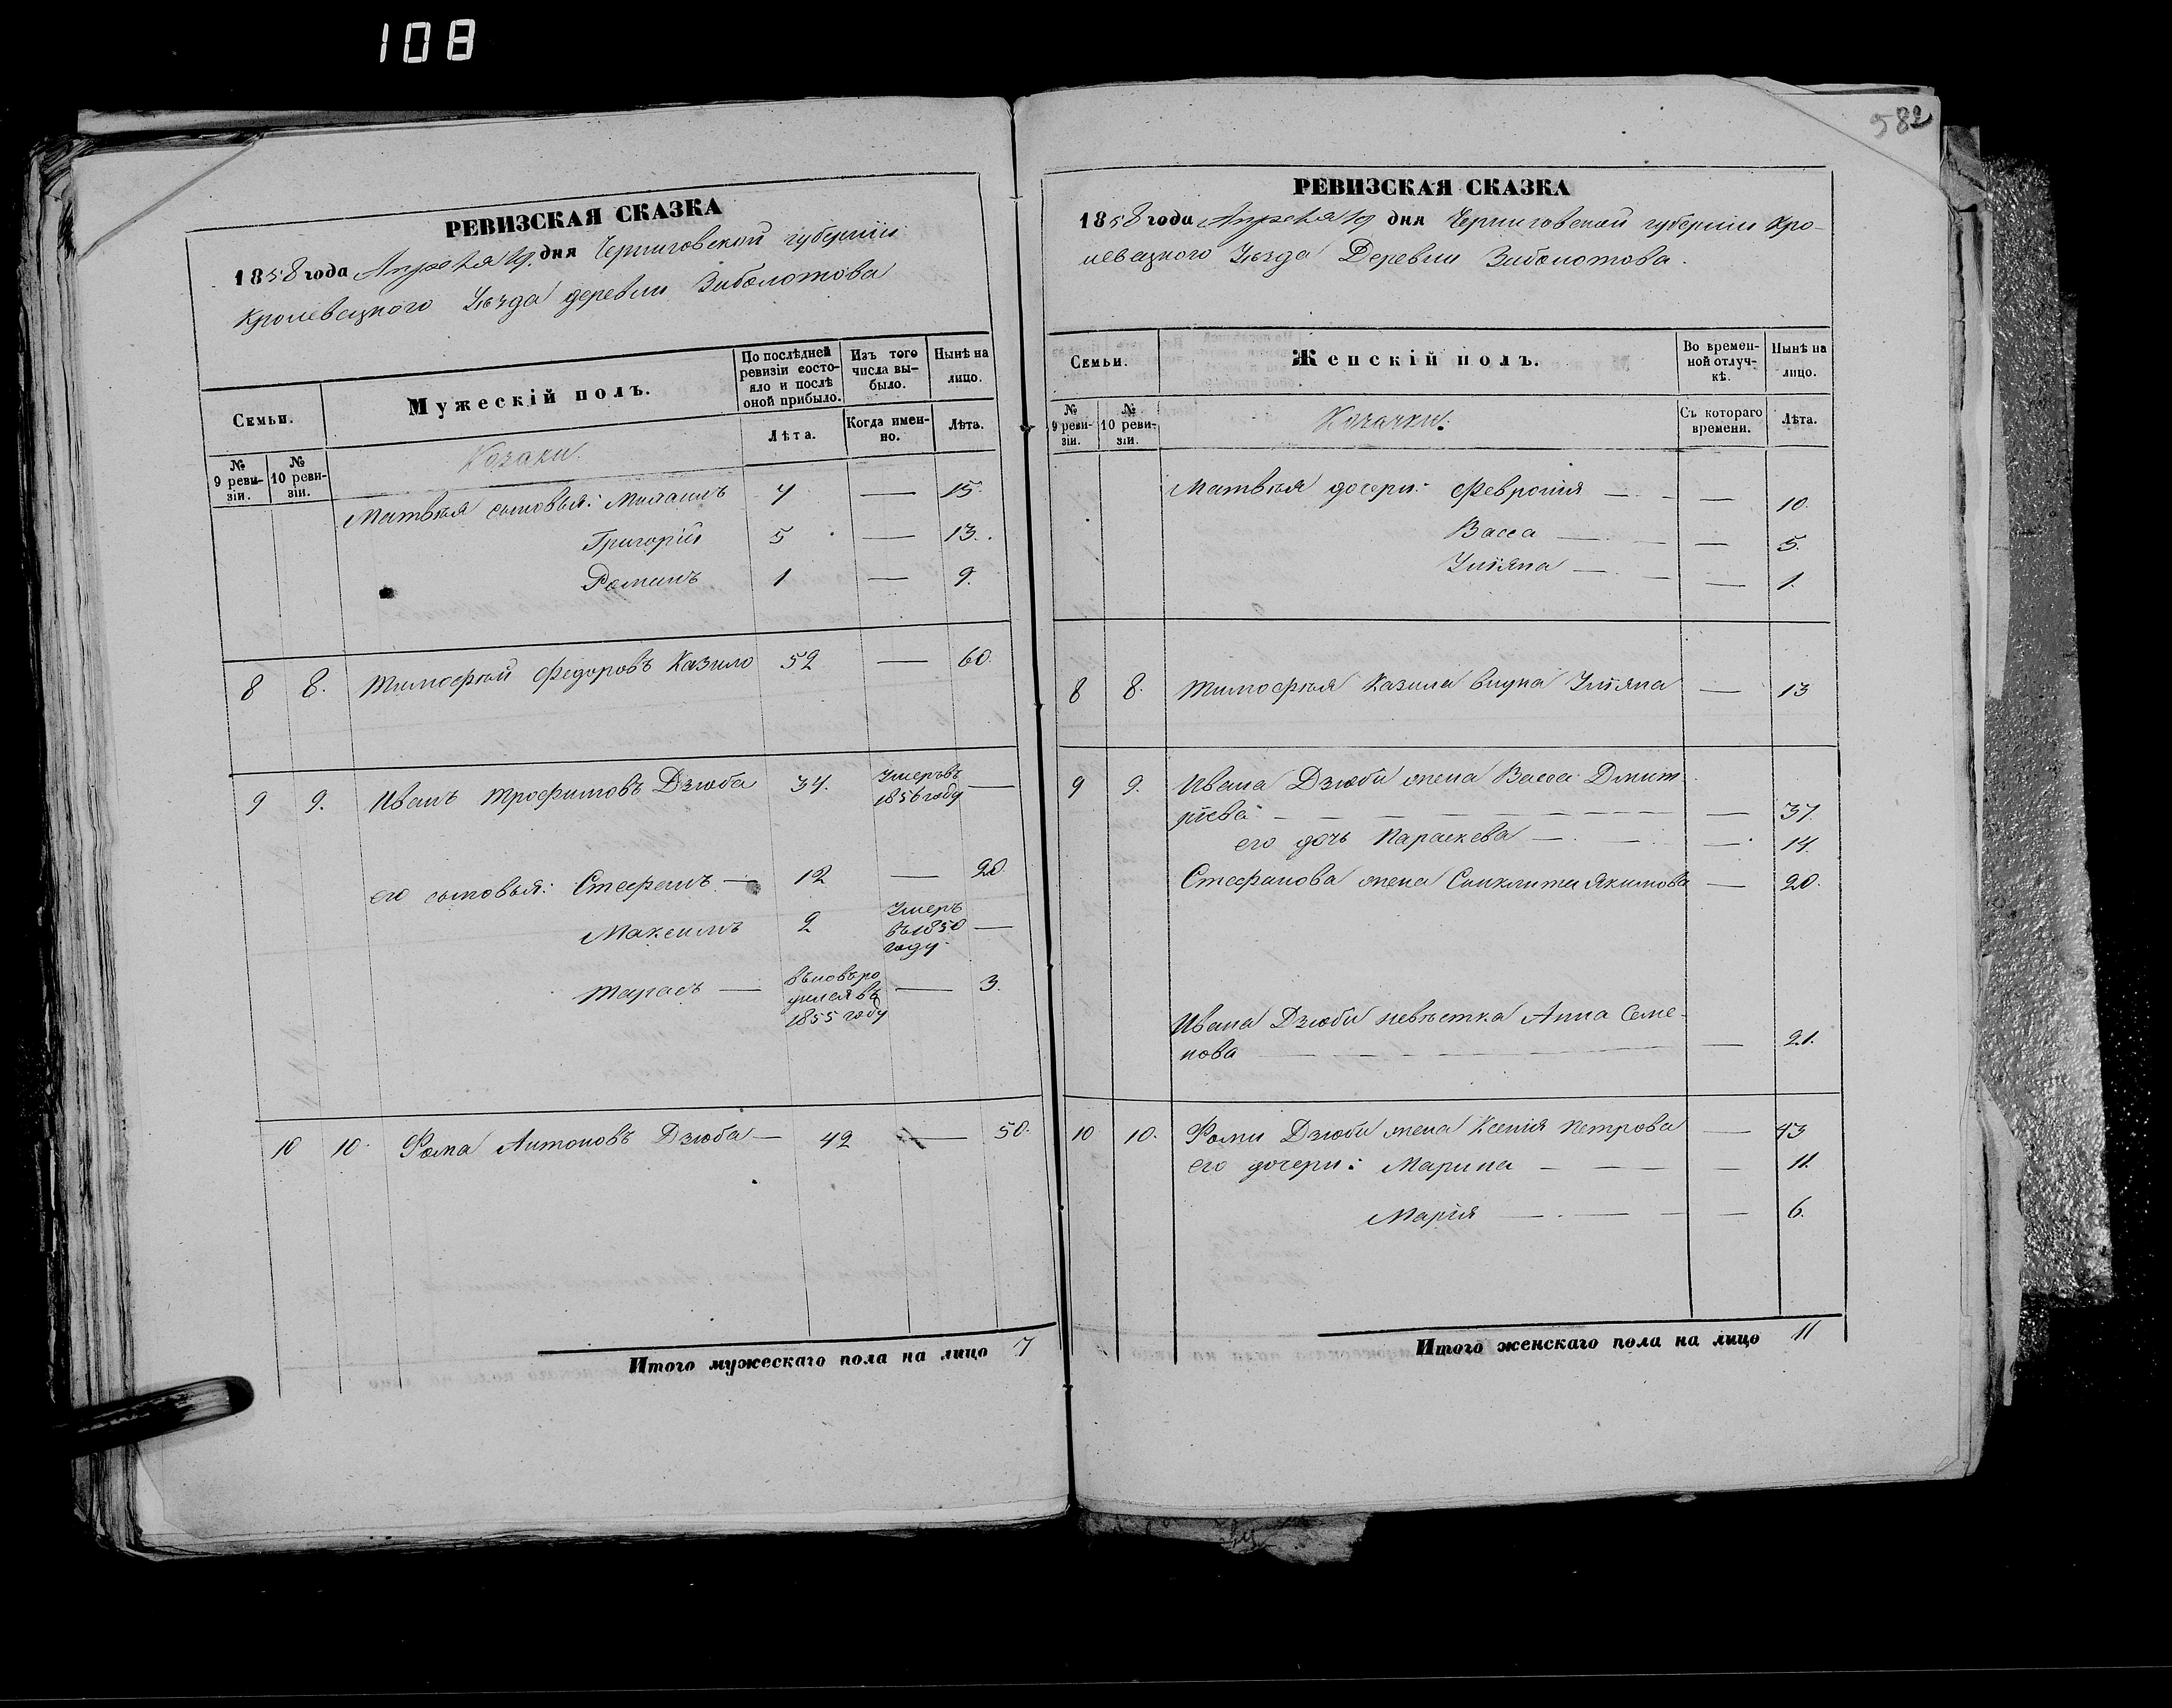 108
582
РЕВИЗСКАЯ СКАЗКА
1858 года Апреля 19 дня Черниговской губернии
Кролевецкого Уѣзда деревни Заболотова
Семьи.
Мужескій полъ.
По послѣдней ревизіи состояло и послѣ оной прибыло.
Изъ того числа выбыло.
Нынѣ на лицо.
№ 9 ревизіи.
№ 10 ревизіи.
Козаки.
Лѣта.
Когда именно.
Лѣта.
Матвѣя сыновья: 7 — 15.
Григорій 5 — 13.
Романъ 1 — 9.
8 8. Тимофѣй Федоровъ Казило 52 — 60.
9 9. Иванъ Трофимовъ Дзюба 34. Умеръ въ 1856 году —
его сыновья: Стефанъ — 12 — 20
Максимъ 2 Умеръ въ 1850 году —
Тарасъ — вновь родился въ 1855 году — 3.
10 10. Фома Антоновъ Дзюба — 42 — 50.
Итого мужескаго пола на лицо 7
РЕВИЗСКАЯ СКАЗКА
1858 года Апреля 19 дня Черниговской губернии Кро-
левецкого Уѣзда Деревни Заболотова.
Семьи.
Женскій полъ.
Во временной отлучкѣ.
Нынѣ на лицо.
№ 9 ревизіи.
№ 10 ревизіи.
Козачки.
Съ котораго времени.
Лѣта.
Матвѣя дочери: Феврония — — 10.
Васса — — 5.
Улiяна — — 1.
8 8. Тимофѣя Казила внука Улiяна — 13
9 9. Ивана Дзюби жена Васса Дмит-
рiева — — 37.
его дочь Параскева — — 14.
Стефанова жена Синклития Якимова — 20.
Ивана Дзюби невѣстка Анна Семе-
нова — — 21.
10 10. Фоми Дзюби жена Ксенія Петрова — 43
его дочери: Марина — — 11.
Марія — — 6.
Итого женскаго пола на лицо 11